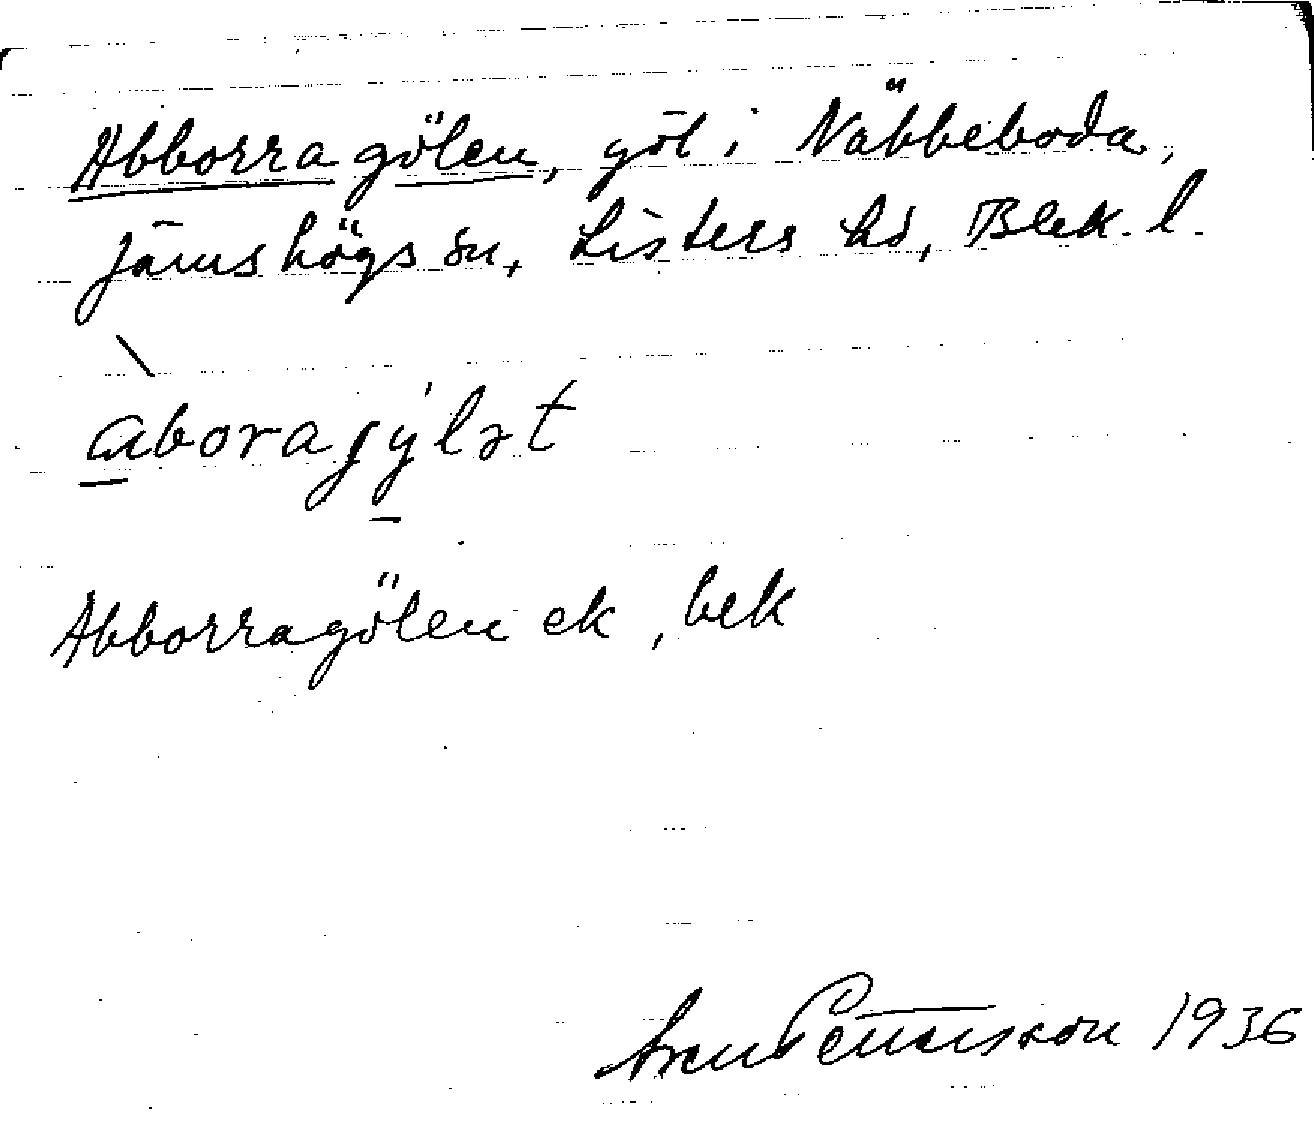 Abborragölen, göl i Näbbeboda,
Jämshögs sn, Listers hd, Blek. l.
aboragýlət
Abborragölen ek, bek
Pettersson 1936